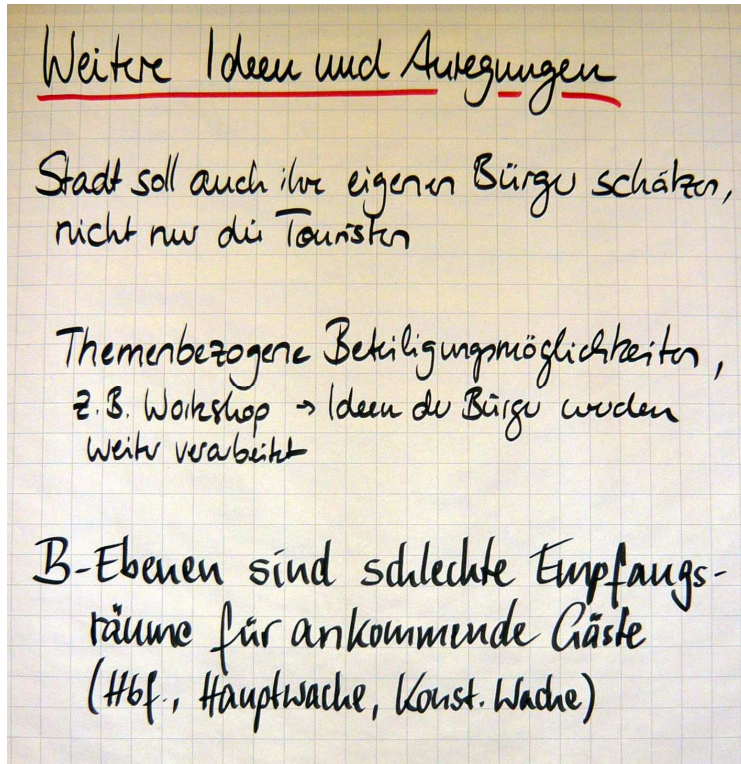 Weitere Ideen und Anregungen
Stadt soll auch ihre eigenen Bürger schätzen,
nicht nur die Touristen
Themenbezogene Beteiligungsmöglichkeiten,
z.B. Workshop → Ideen der Bürger werden
weiter verarbeitet
B-Ebenen sind schlechte Empfangs-
räume für ankommende Gäste
(Hbf., Hauptwache, Konst. Wache)